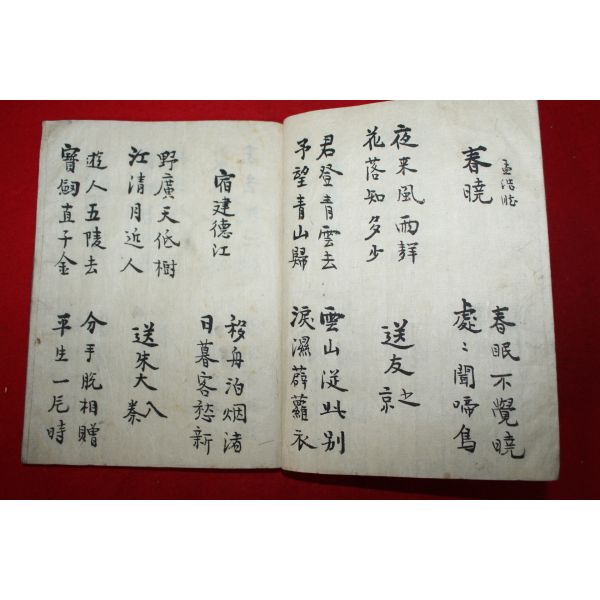 孟浩然
春曉
春眠不覺曉
處〻聞啼鳥
夜来風雨聲
花落知多少
送友之京
君登青雲去
予望青山歸
雲山從此別
淚濕薜蘿衣
宿建德江
移舟泊烟渚
日暮客愁新
野廣天低樹
江清月近人
送朱大入秦
遊人五陵去
寶劒直千金
分手脫相贈
平生一片時